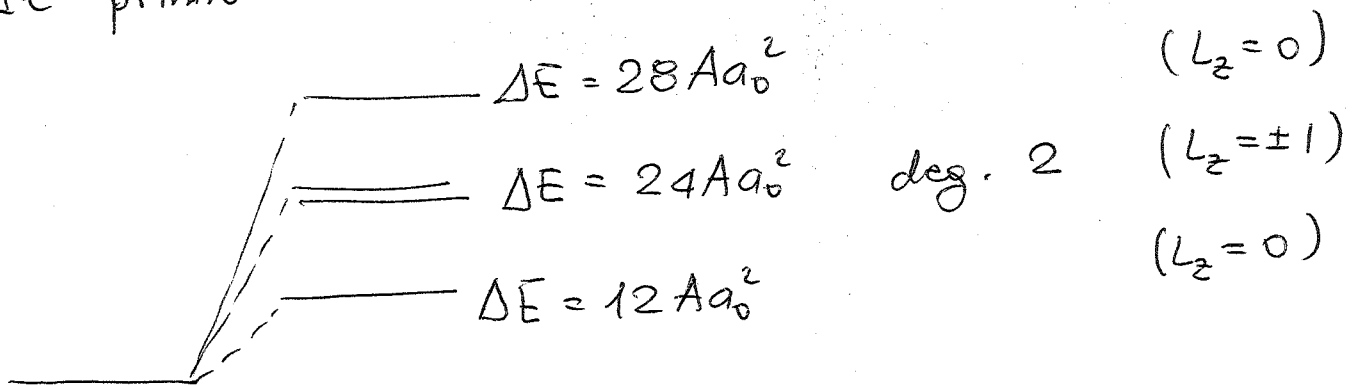 primo
ΔE = 28 Aa₀² (L_z = 0)
ΔE = 24 Aa₀² deg. 2 (L_z = ± 1)
ΔE = 12 Aa₀² (L_z = 0)